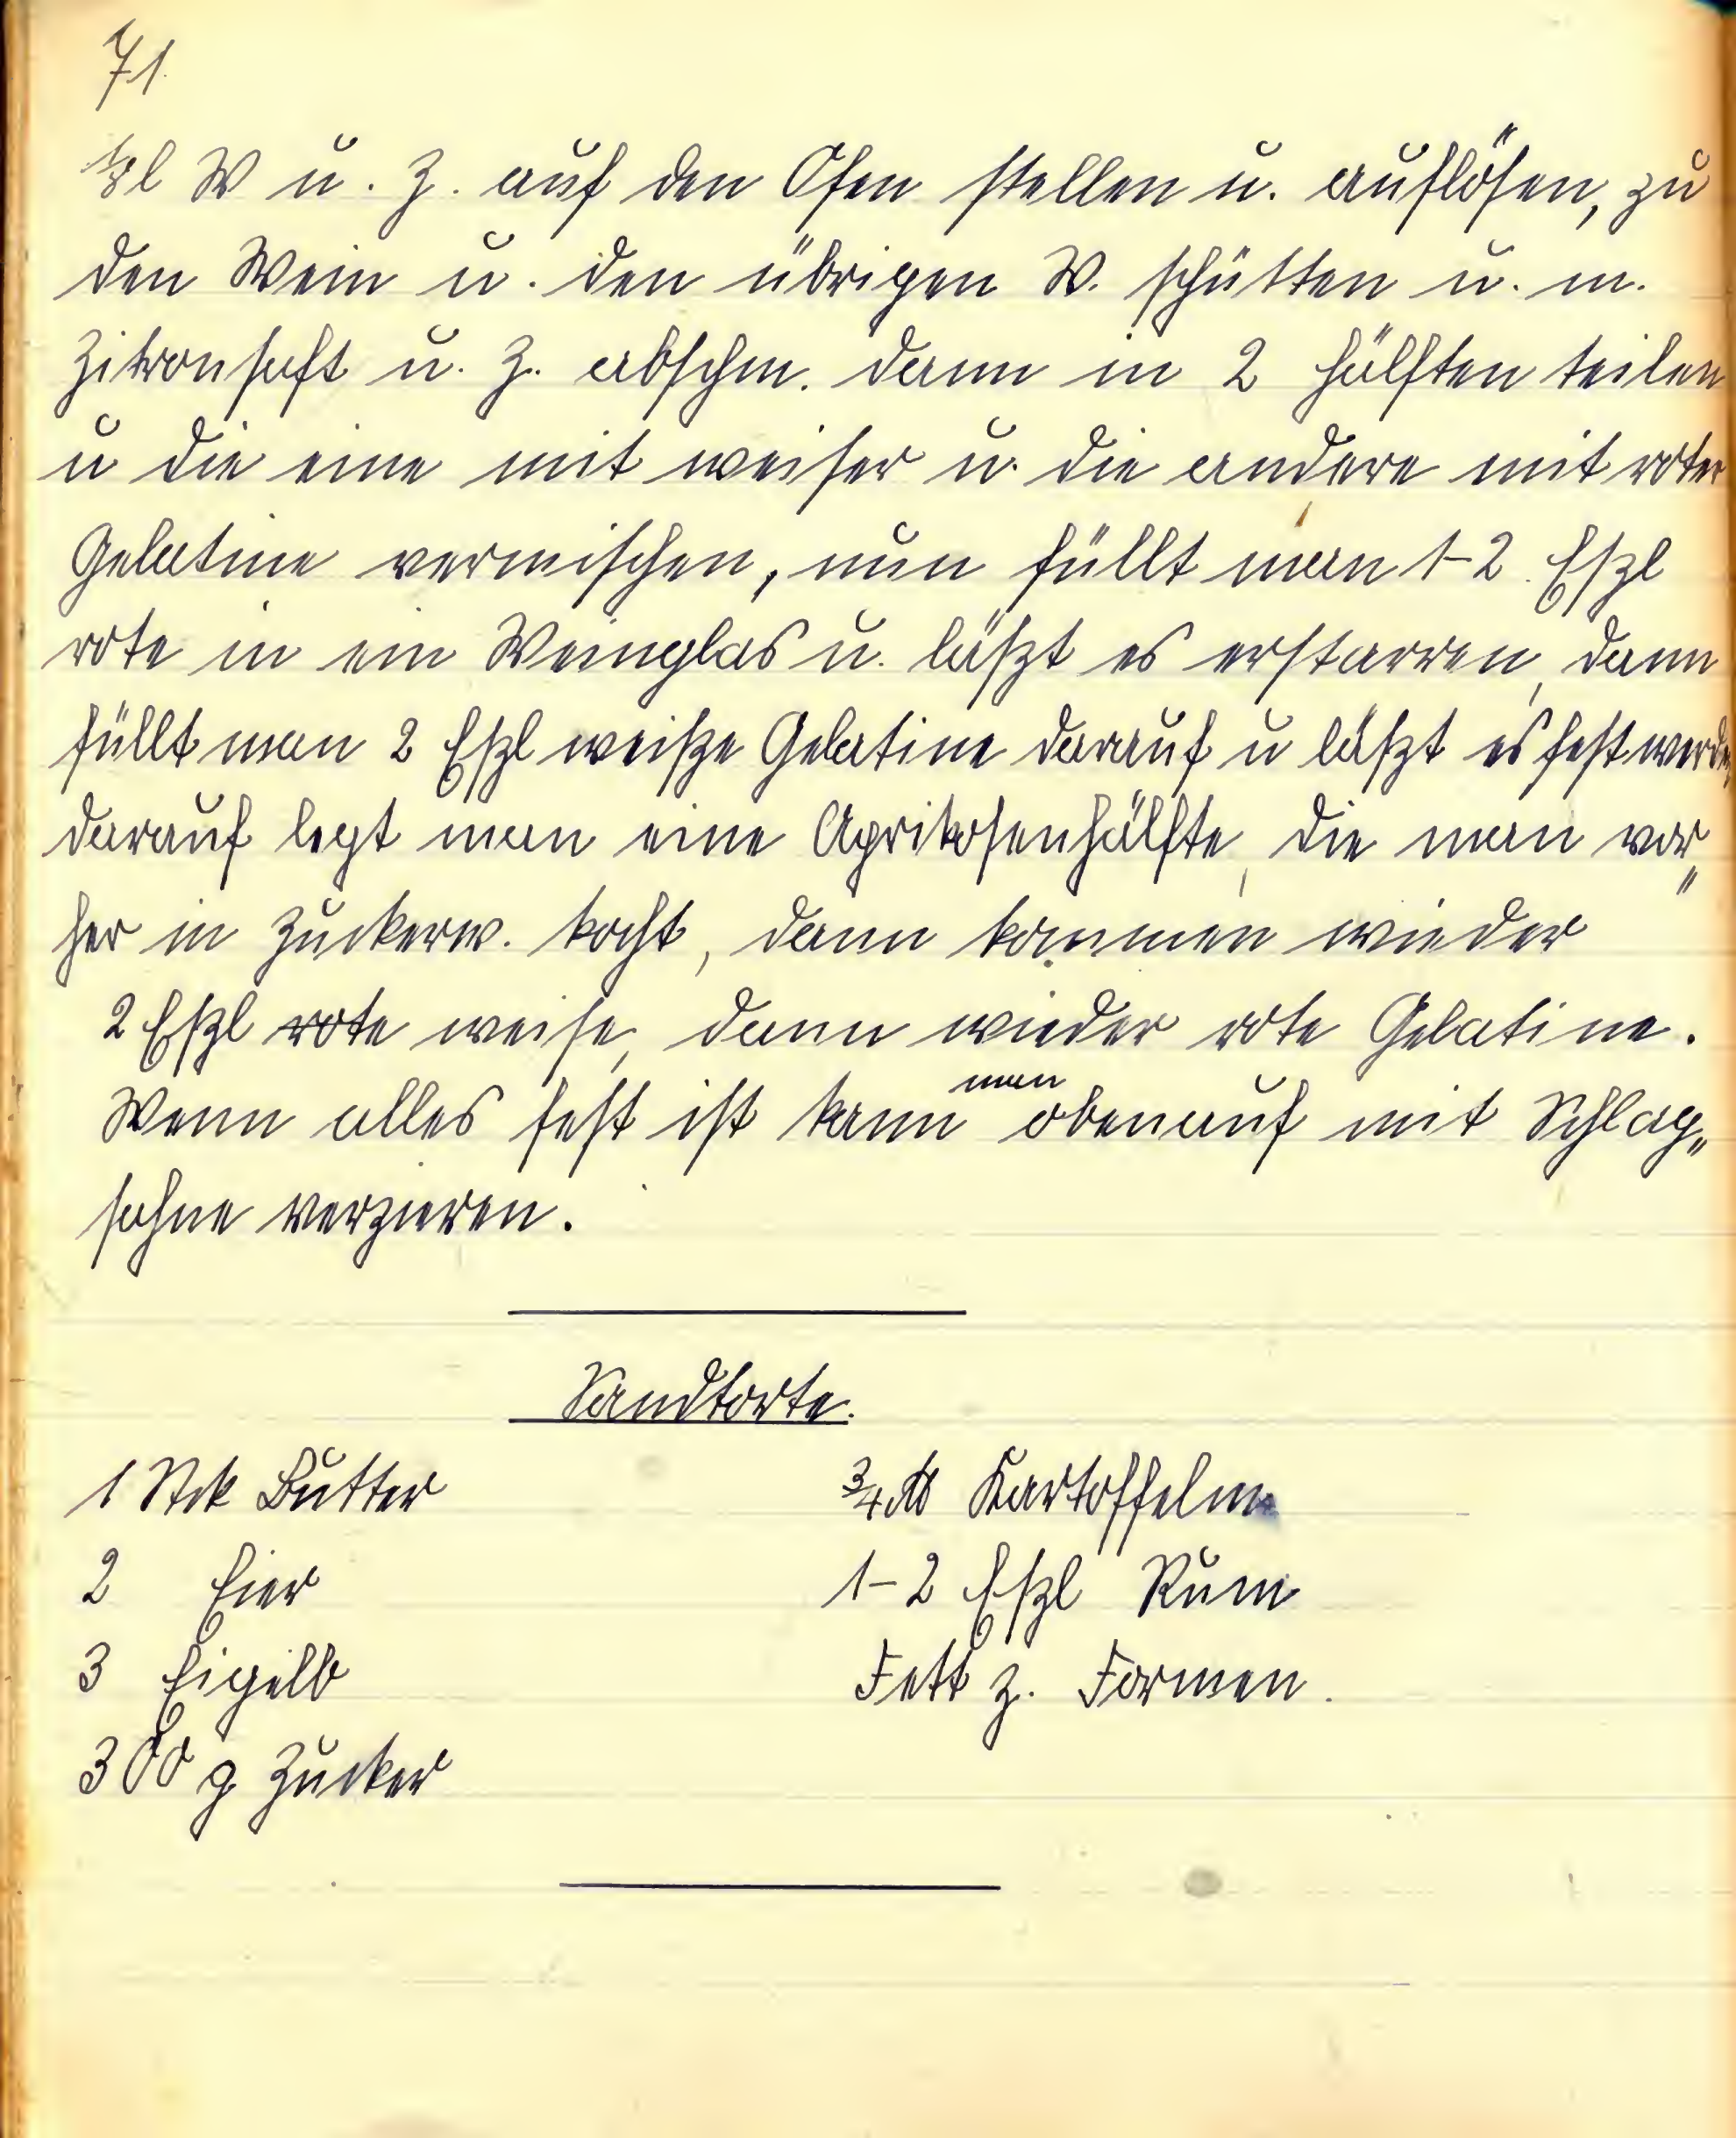 71
⅛l W u. Z. auf den Ofen stellen u. auflösen, zu
den Wein u. den übrigen W. schütten u. m.
Zitronsaft u. Z. abschm. dann in 2 Hälften teilen
u die eine mit weiser u. die andere mit roter
Gelatine vermischen, nun füllt man 1-2 Eßl
rote in ein Weinglas u. läßt es erstarren, dann
füllt man 2 Eßl weiße Gelatine darauf u läßt es fest werden
darauf legt man eine Aprikosenhälfte, die man vor„
her in Zuckerw. kocht, dann kommen wieder
2 Eßl rote weise, dann wieder rote Gelatine.
Wenn alles fest ist kann man obenauf mit Schlag„
sahne verzieren.
Sandtorte.
1 Stck Butter
2 Eier
3 Eigelb
300 g Zucker
¾ ℔ Kartoffelm
1-2 Eßl Rum
Fett z. Formen.